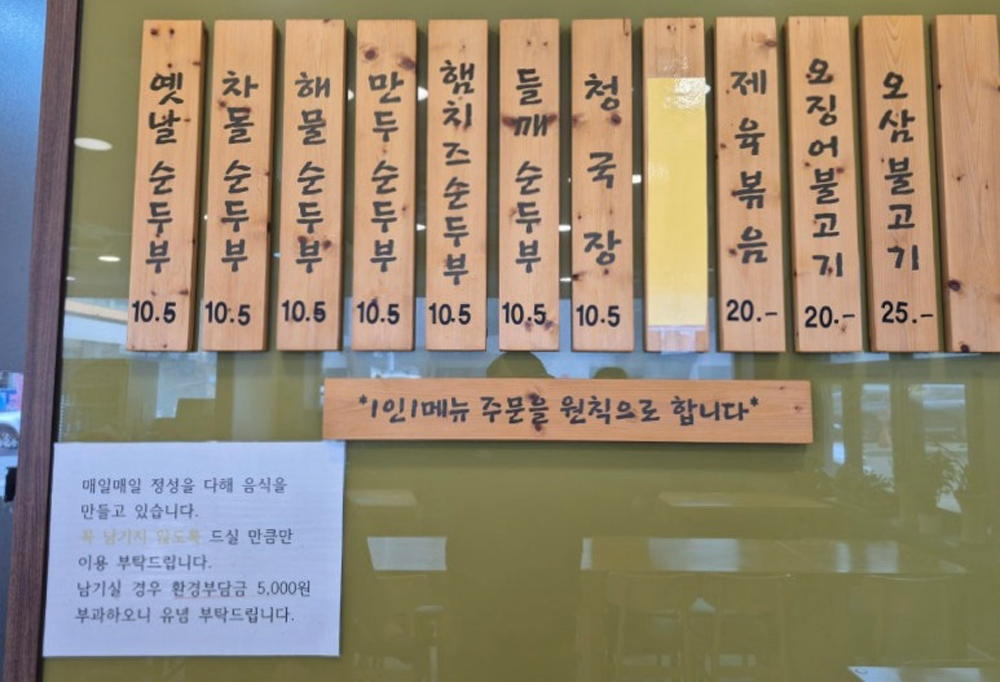 옛날 순두부 10.5
차돌 순두부 10.5
해물 순두부 10.5
만두 순두부 10.5
햄치즈순두부 10.5
들깨 순두부 10.5
청국장 10.5
제육볶음 20.-
오징어불고기 20.-
오삼불고기 25.-
*1인1메뉴 주문을 원칙으로 합니다*
매일매일 정성을 다해 음식을
만들고 있습니다.
꼭 남기지 않도록 드실 만큼만
이용 부탁드립니다.
남기실 경우 환경부담금 5,000원
부과하오니 유념 부탁드립니다.